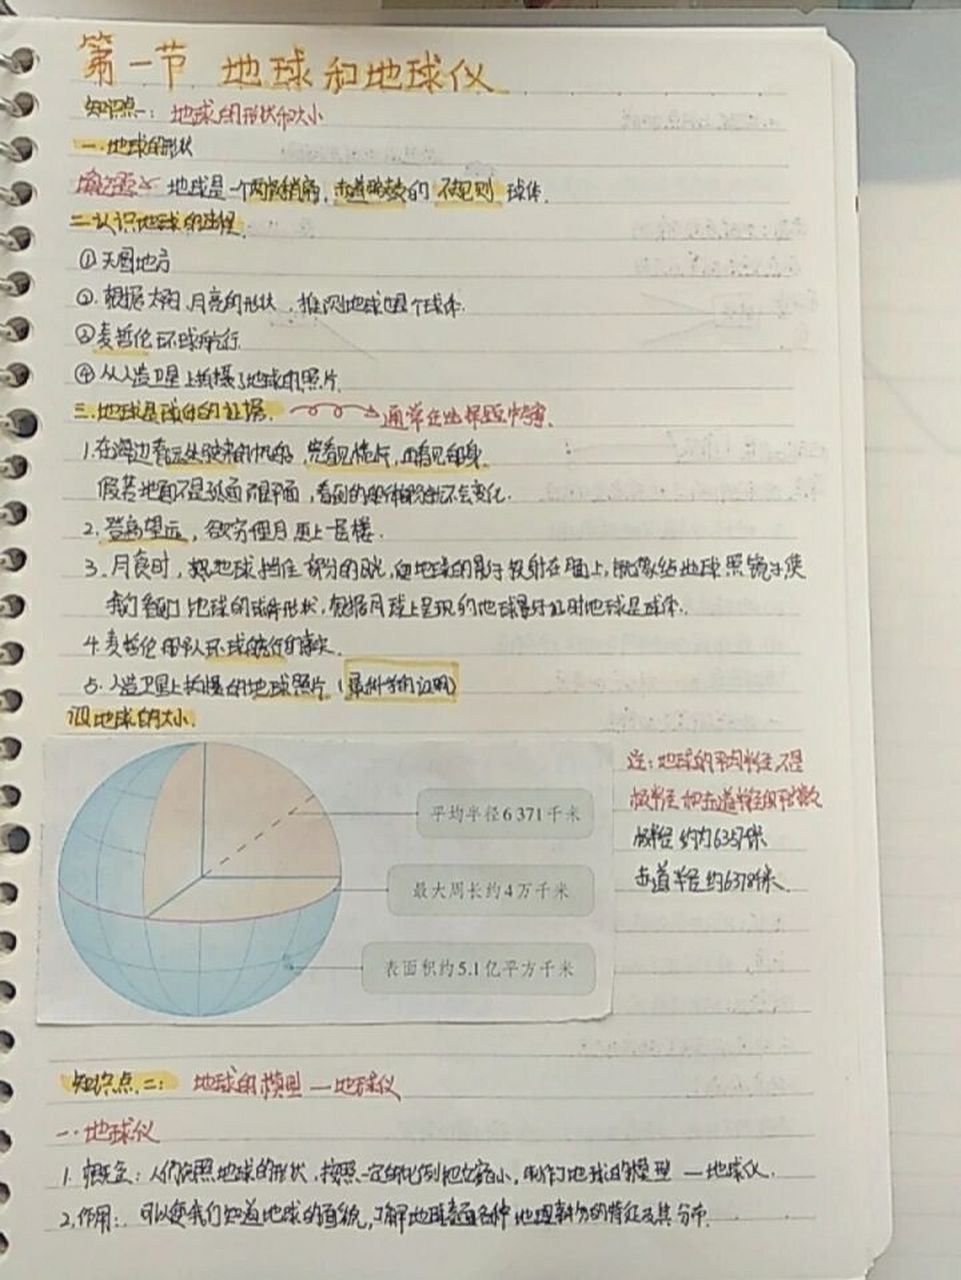 第一节 地球和地球仪
知识点一：地球的形状和大小
一.地球的形状
填空题 地球是一个两极稍扁，赤道略鼓的 不规则 球体.
二.认识地球的过程
①天圆地方
②.根据太阳、月亮的形状，推测地球也是个球体.
③麦哲伦环球航行
④从人造卫星上拍摄了地球的照片
三.地球是球体的证据. 通常在选择题中考.
1.在海边看远处驶来的帆船，先看见桅杆，再看见船身.
假若地面不是弧面而是平面，看到的船体部分就不会变化.
2.登高望远，欲穷 目 更上一层楼.
3.月食时， 地球挡住 部分的 ，但地球的影子投射在 面上， 给地球照镜子使
我们看到了地球的球体形状，根据月球上呈现的地球影子 时地球是球体.
4.麦哲伦带队环球航行的事实.
5.人造卫星上拍摄的地球照片（最科学的证明）
四 地球的大小.
平均半径6 371千米
最大周长约4万千米
表面积约5.1亿平方千米
注：地球的平均半径，不是
极半径和赤道半径的平均数
极半径 约为6357千米
赤道半径约6378千米.
知识点二：地球的模型—地球仪
一.地球仪
1.概念：人们依照地球的形状，按照一定的比例把它缩小，制作了地球的模型—地球仪.
2.作用：可以使我们知道地球的面貌，了解地球表面各种地理事物的特征及其分布.